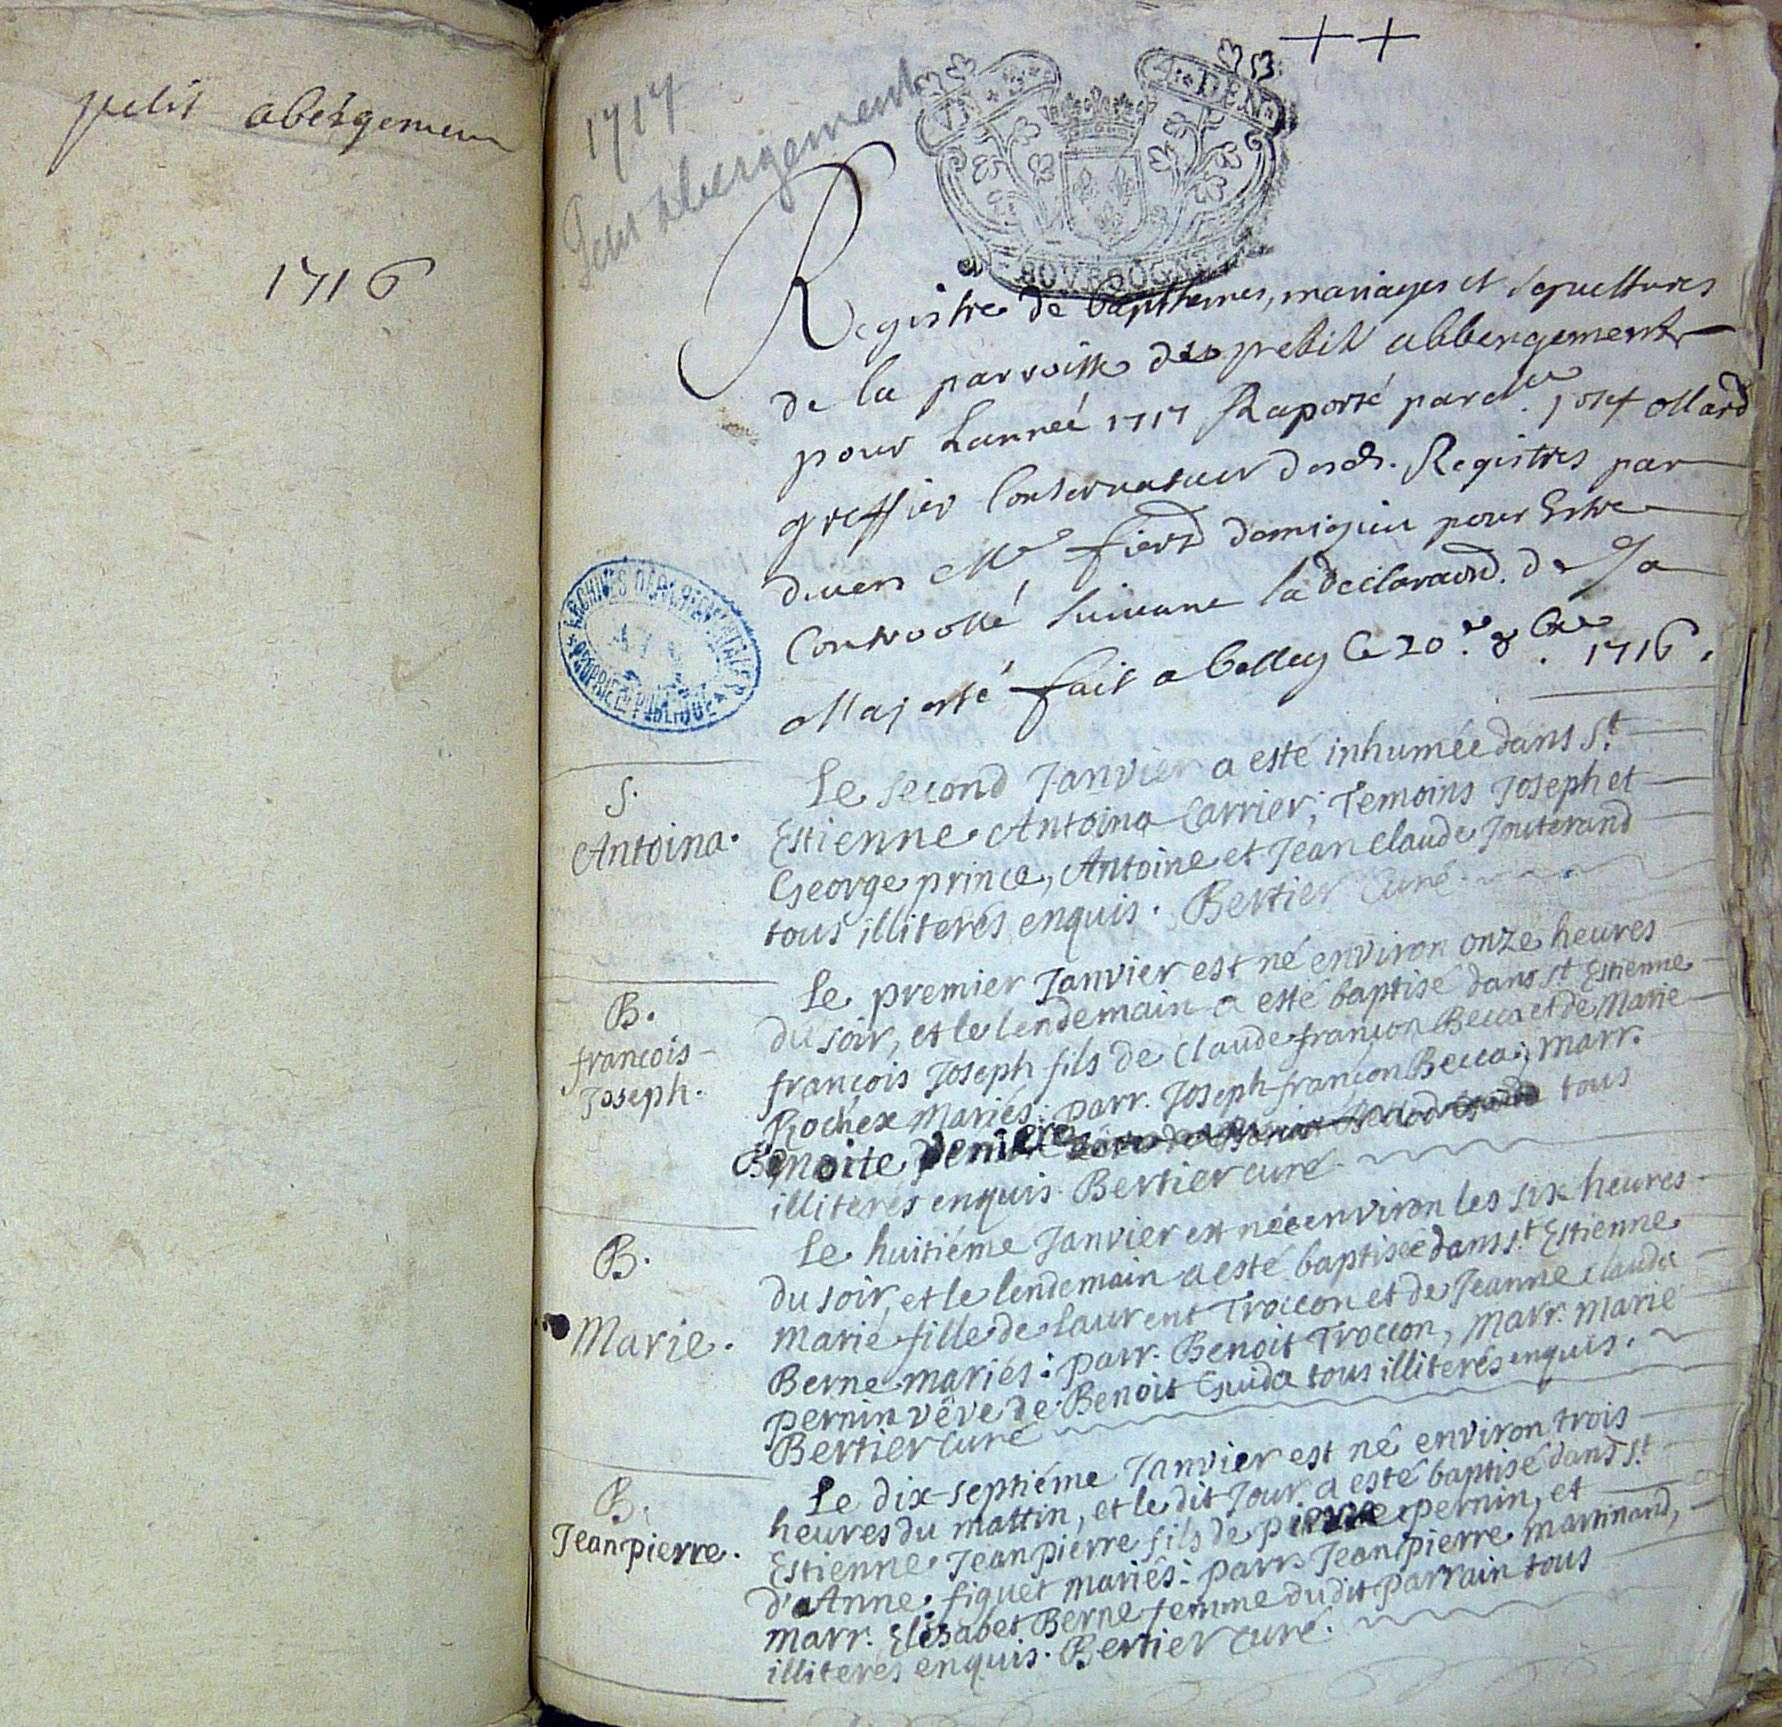 petit abergemen
1716
++
1717
petit abergement
4 · DEN
BOVRGOGNE
Registre de bapthemes, mariages et sepultures
de la parroisse du petit abbergement
pour Lanneé 1717 Raporté par Josef Mard
greffier Conservateur desd. Registres par
devers Me fierd demigieu pour Estre
Controollé suivant la declaraond. de Sa
Majesté fait a belley le 20e. 8bre. 1716.
ARCHIVES DÉPARTEMENTALES
PROPRIÉTÉ PUBLIQUE
S.
Antoina.
Le second Janvier a esté inhumée dans St
Estienne Antoina Carrier; Temoins Joseph et
George prince, Antoine et Jean claude Jouterand
tous illiterés enquis. Bertier Curé
B.
françois
Joseph.
Le premier Janvier est né environ onze heures
du soir, et le lendemain a esté baptisé dans st Estienne
françois Joseph fils de Claude françon Becca et de Marie
Rochex Mariés: parr. Joseph françon Becca; marr.
Benoite perniere tous
illiterés enquis. Bertier curé
B.
Marie.
Le huitiéme Janvier est née environ les six heures
du soir, et le lendemain a esté baptisée dans st Estienne
Marie fille de Laurent Troccon et de Jeanne clauda
Berne mariés: parr. Benoit Troccon, Marr. Marie
pernin vêve de Benoit Guida tous illiterés enquis.
Bertier curé
B.
Jean pierre.
Le dix-septiéme Janvier est né environ trois
heures du mattin, et le dit Jour a esté baptisé dans st
Estienne Jean pierre fils de pierre pernin, et
d'Anne figuet mariés: parr. Jean pierre martinand,
marr. Elisabet Berne femme du dit parrain tous
illiterés enquis. Bertier curé.